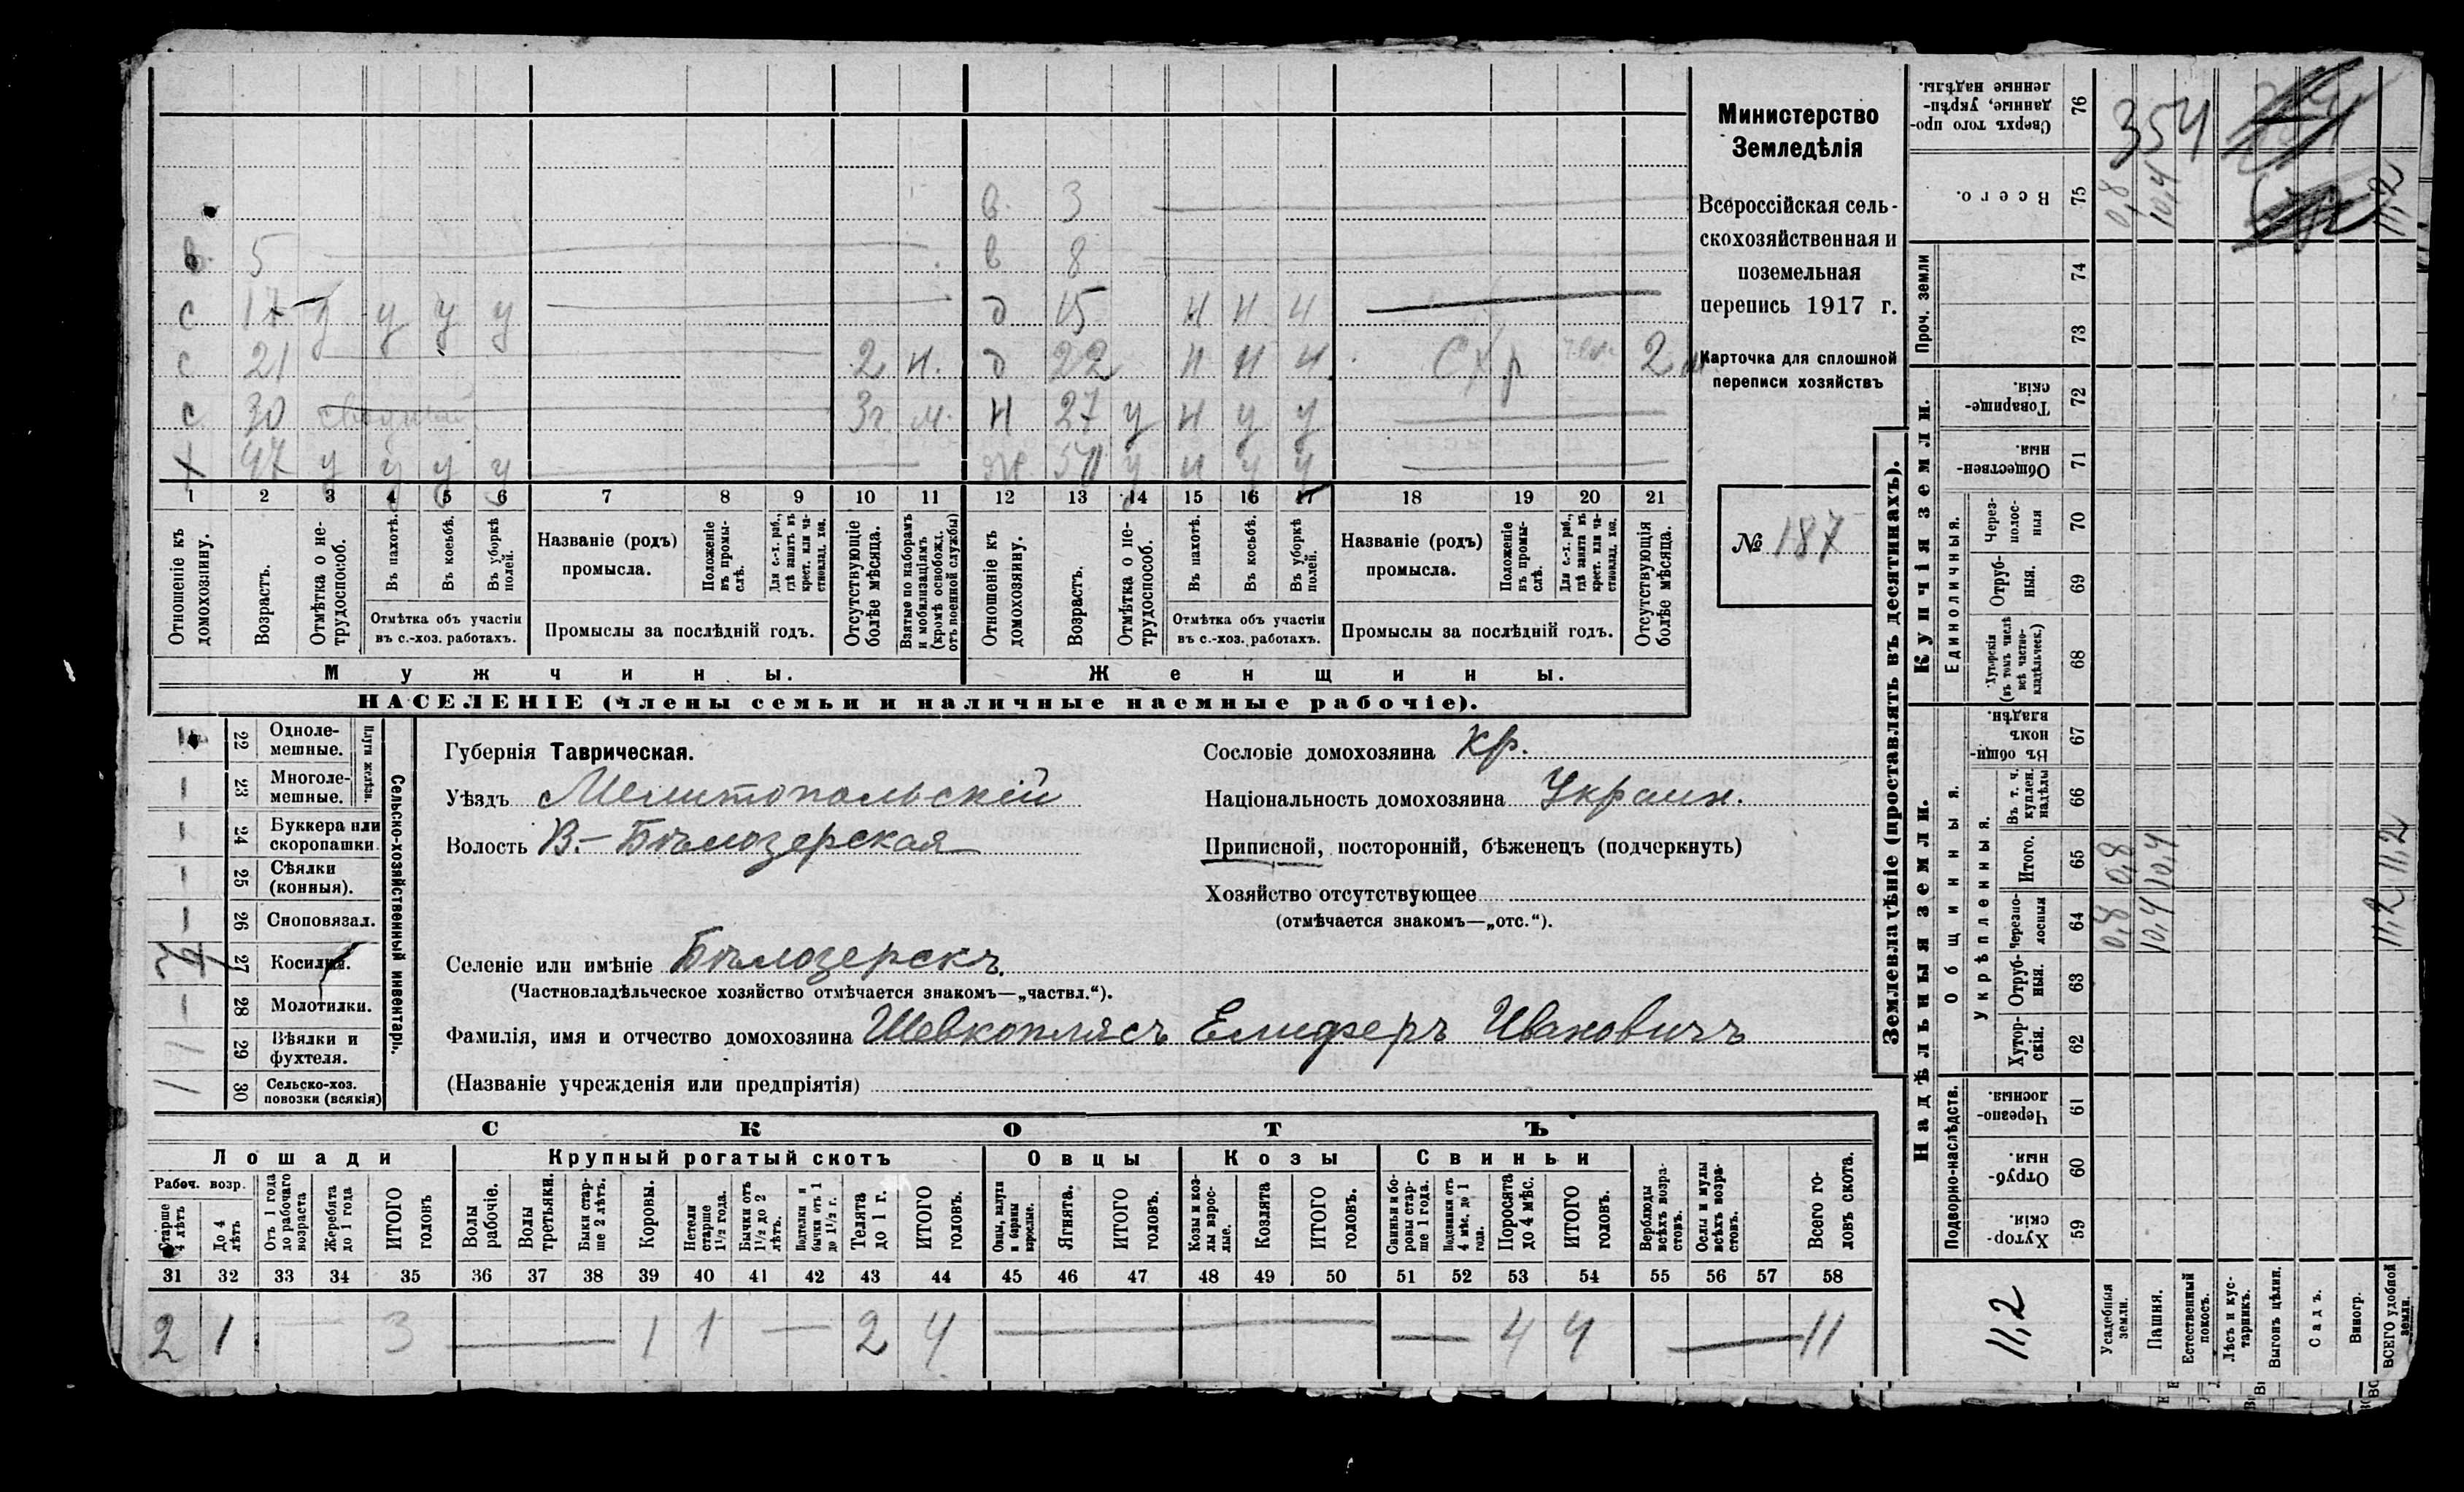 Министерство
Земледѣлія
Всероссійская сель-
скохозяйственная и
поземельная
перепись 1917 г.
Карточка для сплошной
переписи хозяйствъ
№ 187
в. 3
в. 5 в 8
с 17 у у у у д 15 н н н
с 21 2 н. д 22 н н н СХр 2
с 30 3г. м. н 27 у н у у
х 47 у у у у ж 50 у н у у
1 2 3 4 5 6 7 8 9 10 11 12 13 14 15 16 17 18 19 20 21
Отношеніе къ домохозяину.
Возрастъ.
Отмѣтка о не-трудоспособ.
Въ пахотѣ.
Въ косьбѣ.
Въ уборкѣ полей.
Отмѣтка объ участіи
въ с.-хоз. работахъ.
Названіе (родъ)
промысла.
Положеніе въ промы-слѣ.
Для с.-х. раб., гдѣ занятъ въ крест. или ча-стновлад. хоз.
Промыслы за послѣдній годъ.
Отсутствующіе болѣе мѣсяца.
Взятые по наборамъ и мобилизаціямъ (кромѣ освобожд. отъ военной службы)
Отношеніе къ домохозяину.
Возрастъ.
Отмѣтка о не-трудоспособ.
Въ пахотѣ.
Въ косьбѣ.
Въ уборкѣ полей.
Отмѣтка объ участіи
въ с.-хоз. работахъ.
Названіе (родъ)
промысла.
Положеніе въ промы-слѣ.
Для с.-х. раб., гдѣ занята въ крест. или ча-стновлад. хоз.
Промыслы за послѣдній годъ.
Отсутствующія болѣе мѣсяца.
Мужчины. Женщины.
НАСЕЛЕНІЕ (члены семьи и наличные наемные рабочіе).
Сельско-хозяйственный инвентарь.
Плуги желѣзн.
22 Одноле-мешные.
— 23 Многоле-мешные.
— 24 Буккера или скоропашки.
— 25 Сѣялки (конныя).
— 26 Сноповязал.
27 Косилки.
— 28 Молотилки.
1 29 Вѣялки и фухтеля.
1 30 Сельско-хоз. повозки (всякія)
Губернія Таврическая.
Уѣздъ Мелитопольскій
Волость В.-Бѣлозерская
Сословіе домохозяина кр.
Національность домохозяина Украин.
Приписной, посторонній, бѣженецъ (подчеркнуть)
Хозяйство отсутствующее
(отмѣчается знакомъ—„отс.“).
Селеніе или имѣніе Бѣлозерскъ.
(Частновладѣльческое хозяйство отмѣчается знакомъ—„частвл.“).
Фамилія, имя и отчество домохозяина Шевкоплясъ Елиферъ Ивановичъ
(Названіе учрежденія или предпріятія)
СКОТЪ
Лошади Крупный рогатый скотъ Овцы Козы Свиньи
Рабоч. возр.
Старше 4 лѣтъ
До 4 лѣтъ
Отъ 1 года до рабочаго возраста
Жеребята до 1 года
ИТОГО головъ
Волы рабочіе.
Волы третьяки.
Быки стар-ше 2 лѣтъ.
Коровы.
Нетели старше 1½ года.
Бычки отъ 1½ до 2 лѣтъ.
Подтелки и бычки отъ 1 до 1½ г.
Телята до 1 г.
ИТОГО головъ.
Овцы, валухи и бараны взрослые.
Ягнята.
ИТОГО головъ.
Козы и коз-лы взрос-лые.
Козлята
ИТОГО головъ.
Свиньи и бо-ровы стар-ше 1 года.
Подсвинки отъ 4 мѣс. до 1 года.
Поросята до 4 мѣс.
ИТОГО головъ.
Верблюды всѣхъ возра-стовъ.
Ослы и мулы всѣхъ возра-стовъ.
Всего го-ловъ скота.
31 32 33 34 35 36 37 38 39 40 41 42 43 44 45 46 47 48 49 50 51 52 53 54 55 56 57 58
2 1 — 3 — 1 1 — 2 4 — — 4 4 — 11
Землевладѣніе (проставлять въ десятинахъ).
Надѣльныя земли.
Купчія земли.
Проч. земли
Подворно-наслѣдств.
Общинныя.
Укрѣпленныя.
Единоличныя.
Сверхъ того про-данные, укрѣп-ленные надѣлы. 76
Всего. 75
74
73
Товарище-скія. 72
Обществен-ныя. 71
Через-полос-ныя 70
Отруб-ныя. 69
Хуторскія (въ томъ числѣ всѣ частно-владѣльческ.) 68
Въ общин-номъ владѣн. 67
Въ т. ч. куплен. надѣлы 66
Итого. 65
Черезпо-лосныя 64
Отруб-ныя. 63
Хутор-скія. 62
Черезпо-лосныя. 61
Отруб-ныя. 60
Хутор-скія. 59
Усадебныя земли. 0,8 0,8 0,8
Пашня. 10,4 10,4 10,4
Естественный покосъ.
Лѣсъ и кус-тарникъ.
Выгонъ цѣлин.
Садъ.
Виногр.
ВСЕГО удобной земли. 11,2 11,2 11,2
11,2
354